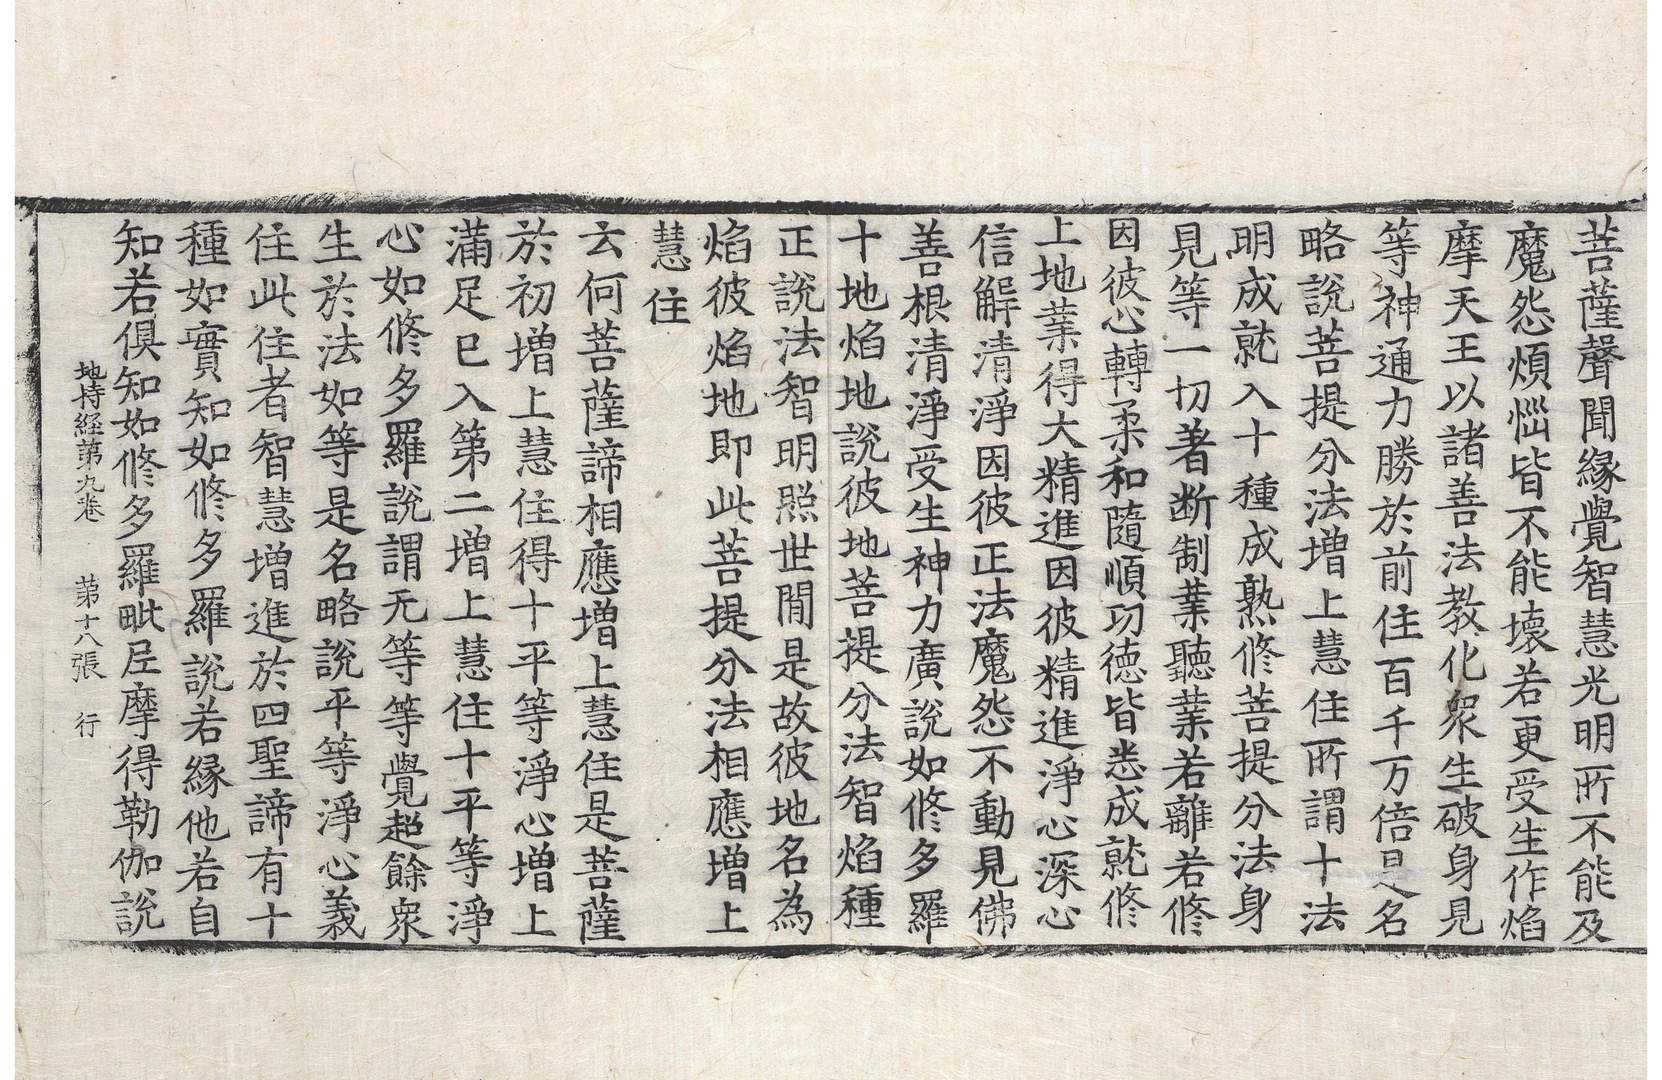 菩薩聲聞縁覺智慧光明所不能及
魔怨煩惱皆不能壞若更受生作焰
摩天王以諸善法教化衆生破身見
等神通力勝於前住百千万倍是名
略說菩提分法增上慧住所謂十法
明成就入十種成熟修菩提分法身
見等一切著断制業聽業若離若修
因彼心轉柔和隨順功德皆悉成就修
上地業得大精進因彼精進淨心深心
信解清淨因彼正法魔怨不動見佛
善根清淨受生神力廣說如修多羅
十地焰地說彼地菩提分法智焰種
正說法智明照世間是故彼地名為
焰彼焰地即此菩提分法相應增上
慧住
云何菩薩諦相應增上慧住是菩薩
於初增上慧住得十平等淨心增上
滿足已入第二增上慧住十平等淨
心如修多羅說謂无等等覺超餘衆
生於法如等是名略說平等淨心義
住此住者智慧增進於四聖諦有十
種如實知如修多羅說若縁他若自
知若俱知如修多羅毗尼摩得勒伽說
地持経第九卷 第十八張 行